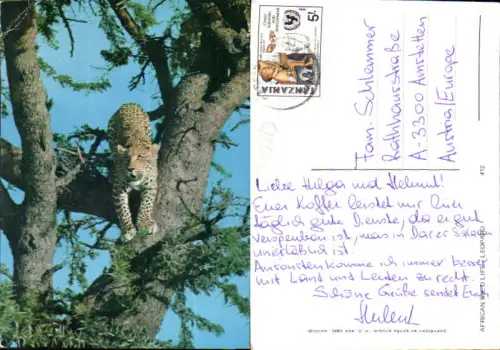 5/-
TANZANIA
Fam. Schlemmer
Rathhausstraße
A-3300 Amstetten
Austria/Europe
Liebe Helga und Helmut!
Euer Koffer leistet mir hier
täglich gute Dienste, da er gut
versperrbar ist, was in Dar es Salaam
unerläßlich ist.
Ansonsten komme ich immer besser
mit Land und Leuten zu recht.
Schöne Grüße sendet Euch
AFRICAN WILD LIFE: LEOPARD
412